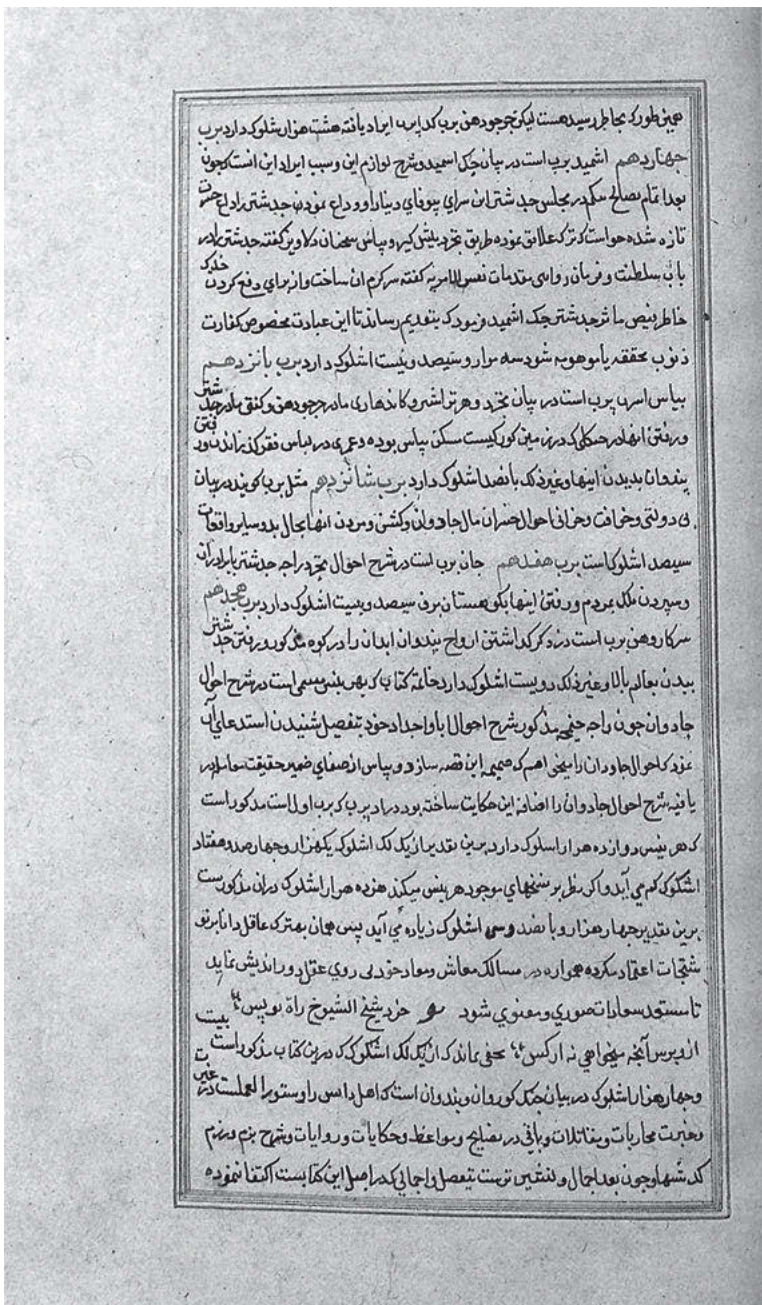 همین طور که بخاطر رسیده است لیکن جرجودهن برب که ایراد یافته هشت هزار شلوک دارد برب
چهاردهم اشمید برب است در بیان جک اسمید و شرح لوازم این و سبب ایراد این انست که چون
بعد اتمام نصایح در مجلس جدشتر این سرای بیوفای دنیا را وداع نمودن جدشتر را داغ حسرت
تازه شده خواست که ترک علایق نموده طریق تجرد پیش گیرد بیاس سخنان دلاویز گفته جدشتر را در
باب سلطنت و فرمان روایی مقدمات نفس الامریه گفته سرگرم ان ساخت و از برای دفع کردن
خاطر فیض ماثر جدشتر جک اشمید فرمود که بتقدیم رساند تا این عبادت مخصوص کفارت
ذنوب محققه یا موهوبه شود سه هزار و سیصد و بیست اشلوک دارد برب پانزدهم
بیاس اسرم برب است در بیان تجرد دهرتراشتر و کاندهاری مادر جرجودهن و کنتی مادر جدشتر
و رفتن انها در جنگلی که در زمین کورکیست مسکن بیاس بوده و عمری در لباس فقر گذراندن و رفتن
پندوان بدیدن اینها و غیر ذلک پانصد اشلوک دارد برب شانزدهم مثل برب گویند در بیان
بی دولتی و خرافت و خرابی احوال خسران مال جادوان و کشتن و مردن انها بحال بد و سایر واقعات
سیصد اشلوک است برب هفدهم جان برب است در شرح احوال تجرد راجه جدشتر با برادران
و سپردن ملک بمردم و رفتن اینها بکوهستان برف سیصد و بیست اشلوک دارد برب هجدهم
سرکاروهن برب است در ذکر گذاشتن ارواح پندوان ابدان را در کوه مذکور و رفتن جدشتر
ببدن بعالم بالا و غیر ذلک دویست اشلوک دارد خاتمه کتاب که بهربنس مسمی است در شرح احوال
جادوان چون راجه جنمیجه مذکور شرح احوال ابا و اجداد خود بتفصیل شنیدن استدعای آن
نمود که احوال جادوان را میخواهم که ضمیمه این قصه سازد و بیاس از صفای ضمیر حقیقت
یافته شرح احوال جادوان را اضافه این حکایت ساخته بود در اد برب که برب اول است مذکور است
که هر بنس دوازده هزار اسلوک دارد برین تقدیر از یک لک اشلوک یکهزار و چهار صد و هفتاد
اشلوک کم می آید و اگر نظر بر نسخهای موجود هر بنس میکند هزده هزار اشلوک دران مذکورست
برین تقدیر چهار هزار و پانصد و سی اشلوک زیاده می آید پس همان بهتر که عاقل دانا بر نو
اعتماد نکرده همواره در مسالک معاش و معاد خود بی روی عقل دوراندیش نماید
تا مستعد سعادات صوری و معنوی شود خرد شیخ الشیوخ راه تو بس بیت
ازو پرس آنچه میخواهی نه از کس مخفی نماند که از یک لک اشلوک که درین کتاب مذکور است
و چهار هزار اشلوک در بیان جنگ کوروان و پندوان است که اهل دانش را دستورالعملست در غیرت
و عبرت محاربات و مقاتلات و باقی در نصایح و مواعظ و حکایات و روایات و شرح بزم و رزم
گذشتها و چون بعد اجمال دلنشین ترست بتفصیل اجمالی که در اصل این کتابست اکتفا نموده